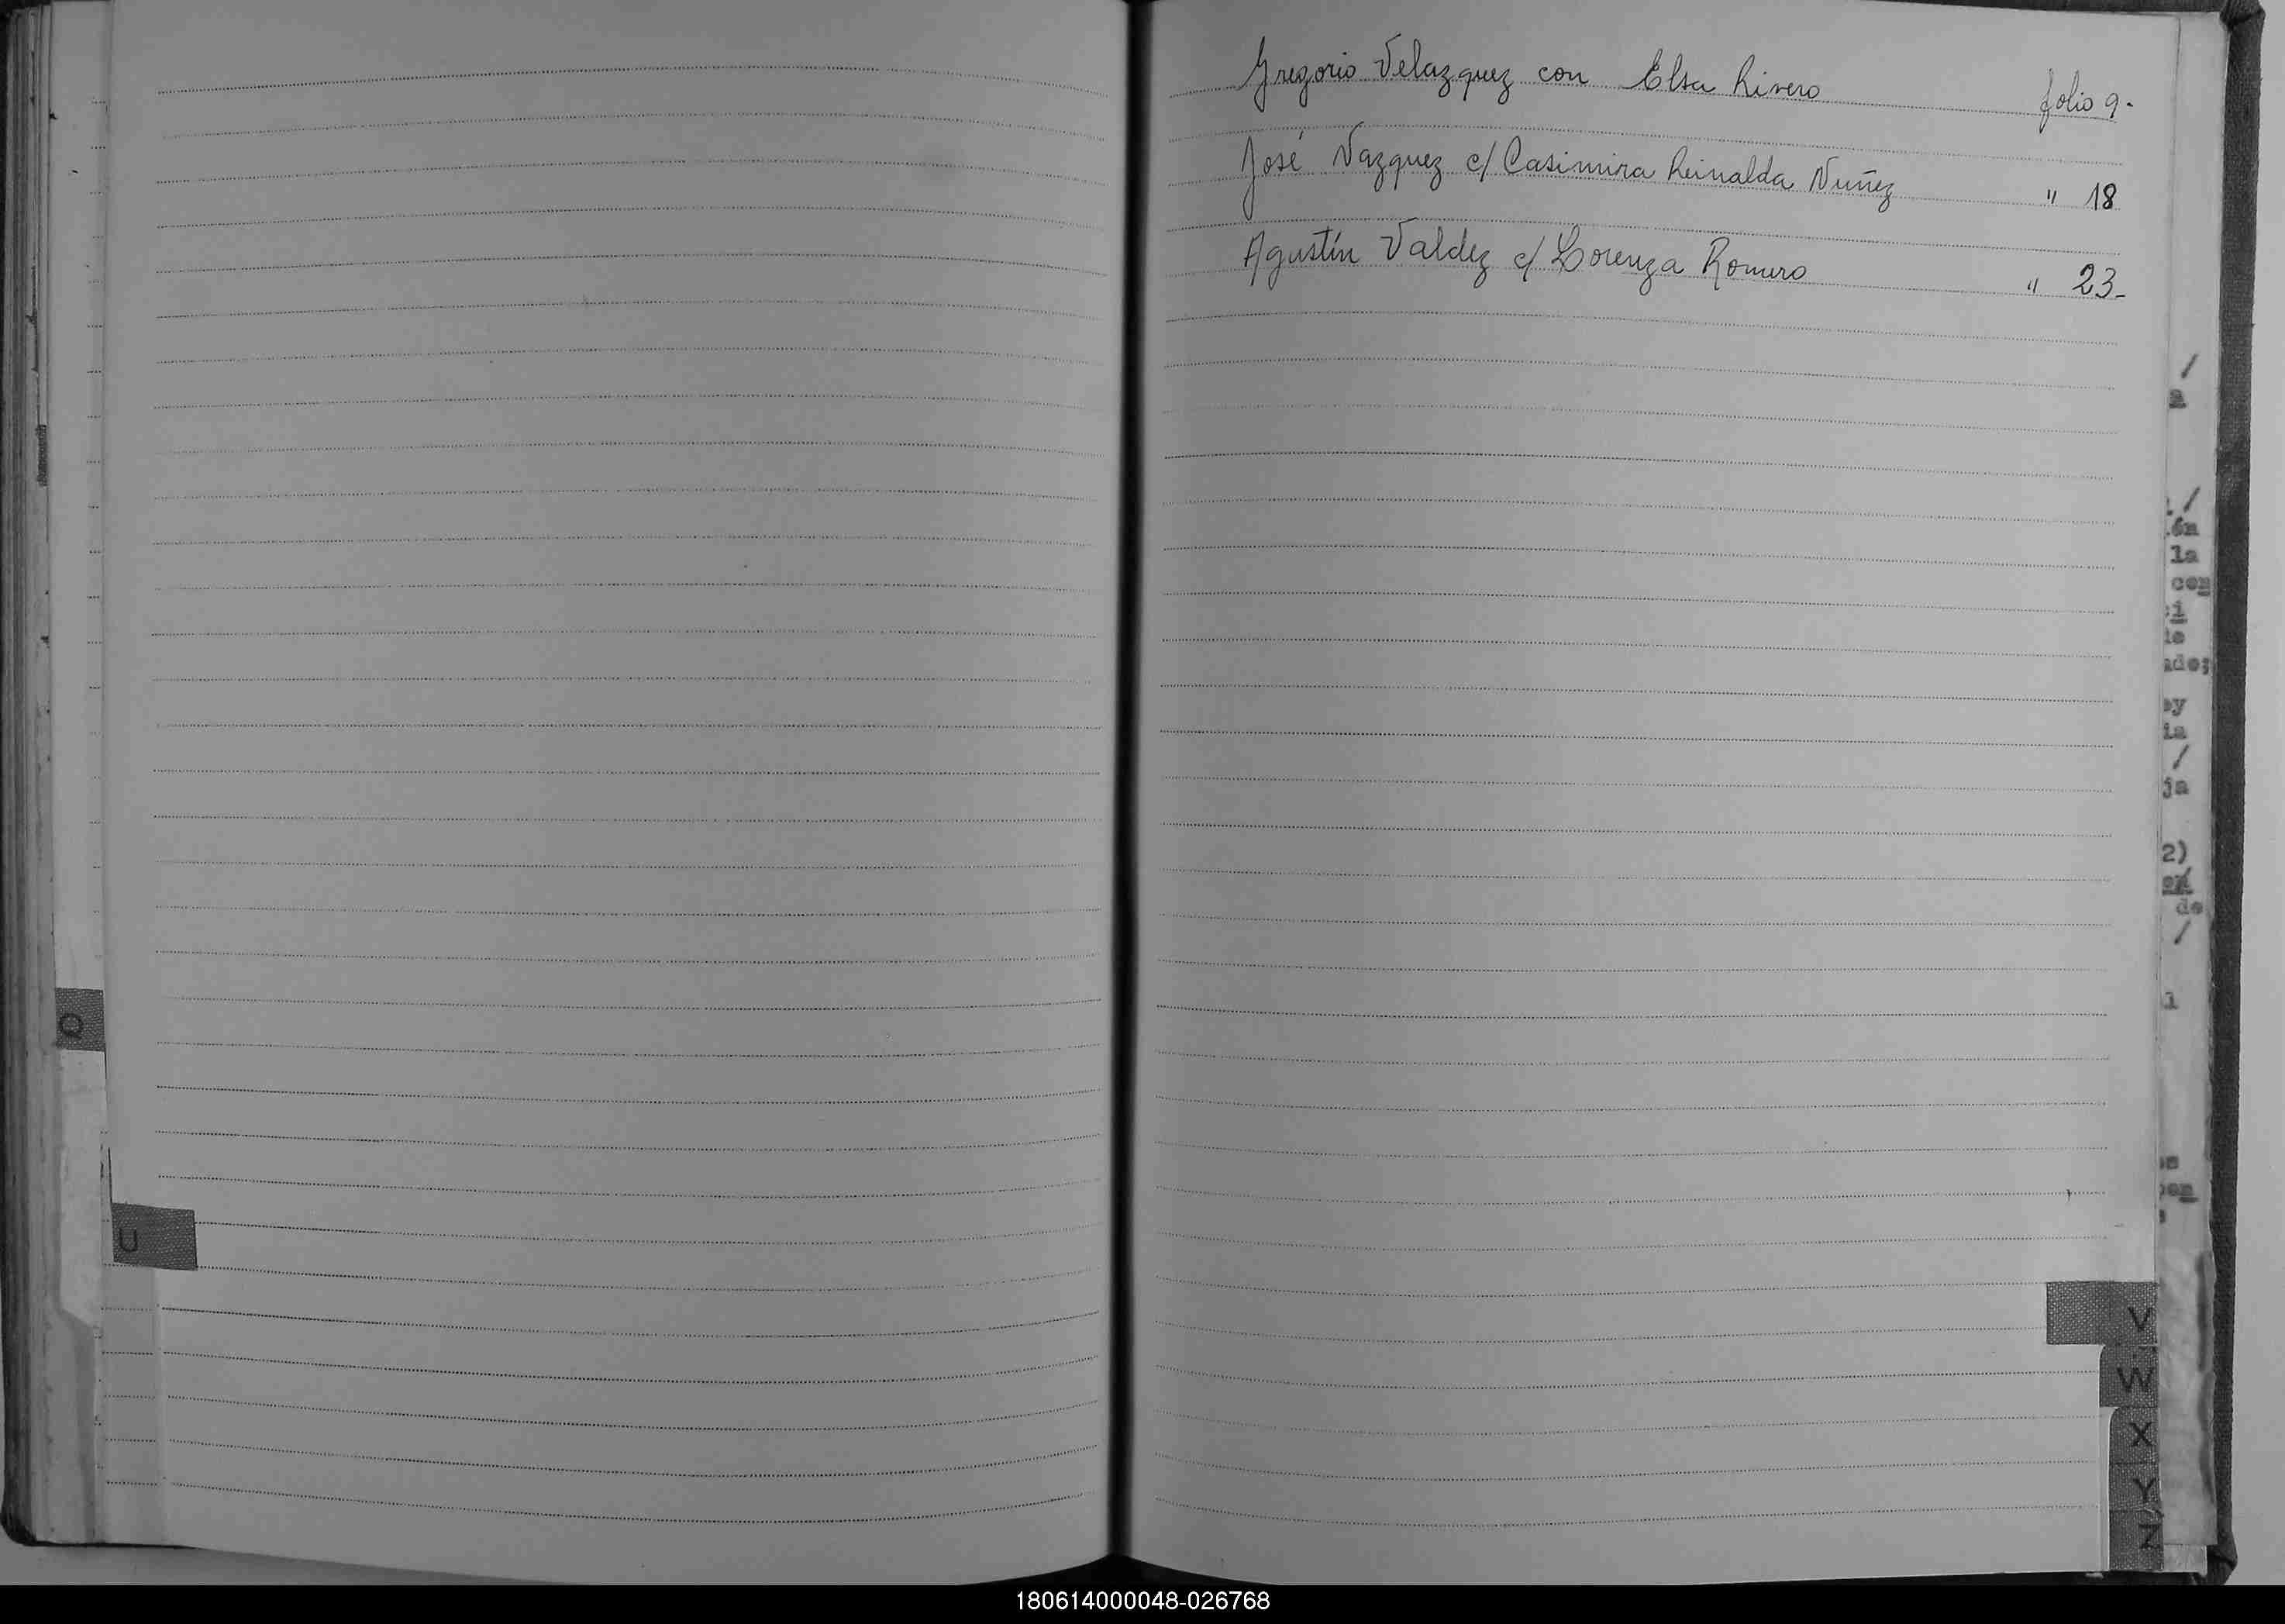 Gregorio Velazquez con Elsa Rivero folio 9.
José Vazquez c/ Casimira Reinalda Nuñez " 18
Agustín Valdez c/ Lorenza Romero " 23-
/
a
/
la
con
de
/
2)
de
/
Q
U
V
W
X
Y
Z
180614000048-026768